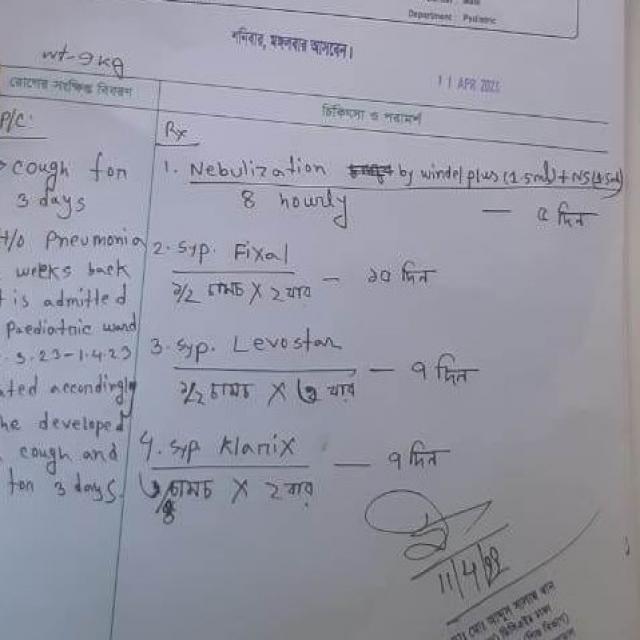 Department : Pediatric
শনিবার, মঙ্গলবার আসবেন।
wt-9kg
11 APR 2023
রোগের সংক্ষিপ্ত বিবরণ
চিকিৎসা ও পরামর্শ
P/C:
cough for
3 days
H/O Pneumonia
weeks back
is admitted
Paediatric ward
3.23-1.4.23
accordingly
he developed
cough and
for 3 days.
Rx
1. Nebulization by windel plus (1.5ml) + NS
8 hourly — ৫ দিন
2. Syp. Fixal
১/২ চামচ X ২ বার — ১০ দিন
3. Syp. Levostar
১/২ চামচ X ৩ বার — ৭ দিন
4. Syp Klarix
৩/৪ চামচ X ২ বার — ৭ দিন
11/4/